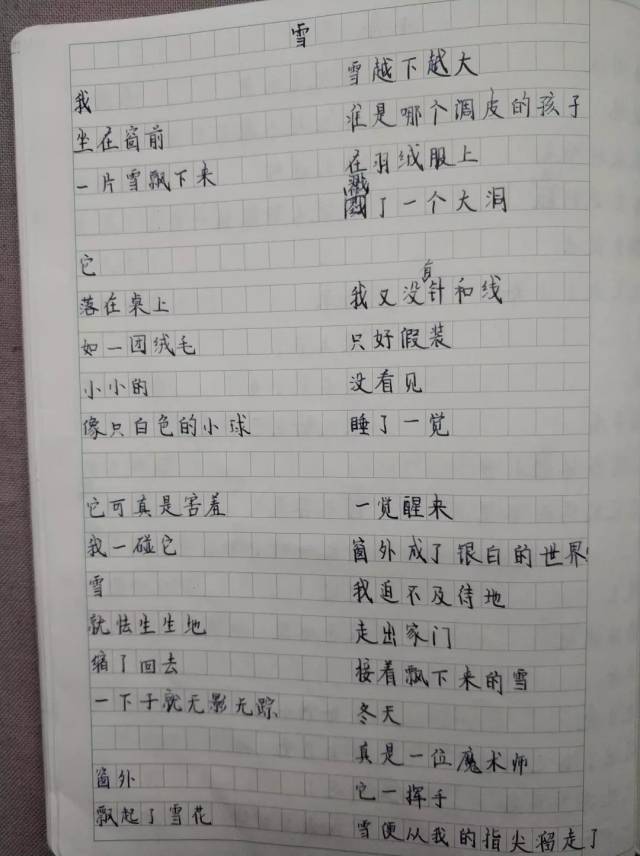 雪
我
坐在窗前
一片雪飘下来
它
落在桌上
如一团绒毛
小小的
像只白色的小球
它可真是害羞
我一碰它
雪
就怯生生地
缩了回去
一下子就无影无踪
窗外
飘起了雪花
雪越下越大
谁是哪个调皮的孩子
在羽绒服上
戳了一个大洞
我又没有针和线
只好假装
没看见
睡了一觉
一觉醒来
窗外成了银白的世界
我迫不及待地
走出家门
接着飘下来的雪
冬天
真是一位魔术师
它一挥手
雪便从我的指尖溜走了